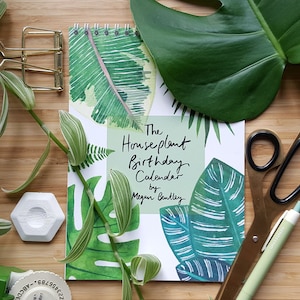 The
Houseplant
Birthday
Calendar
by
Megan Bentley